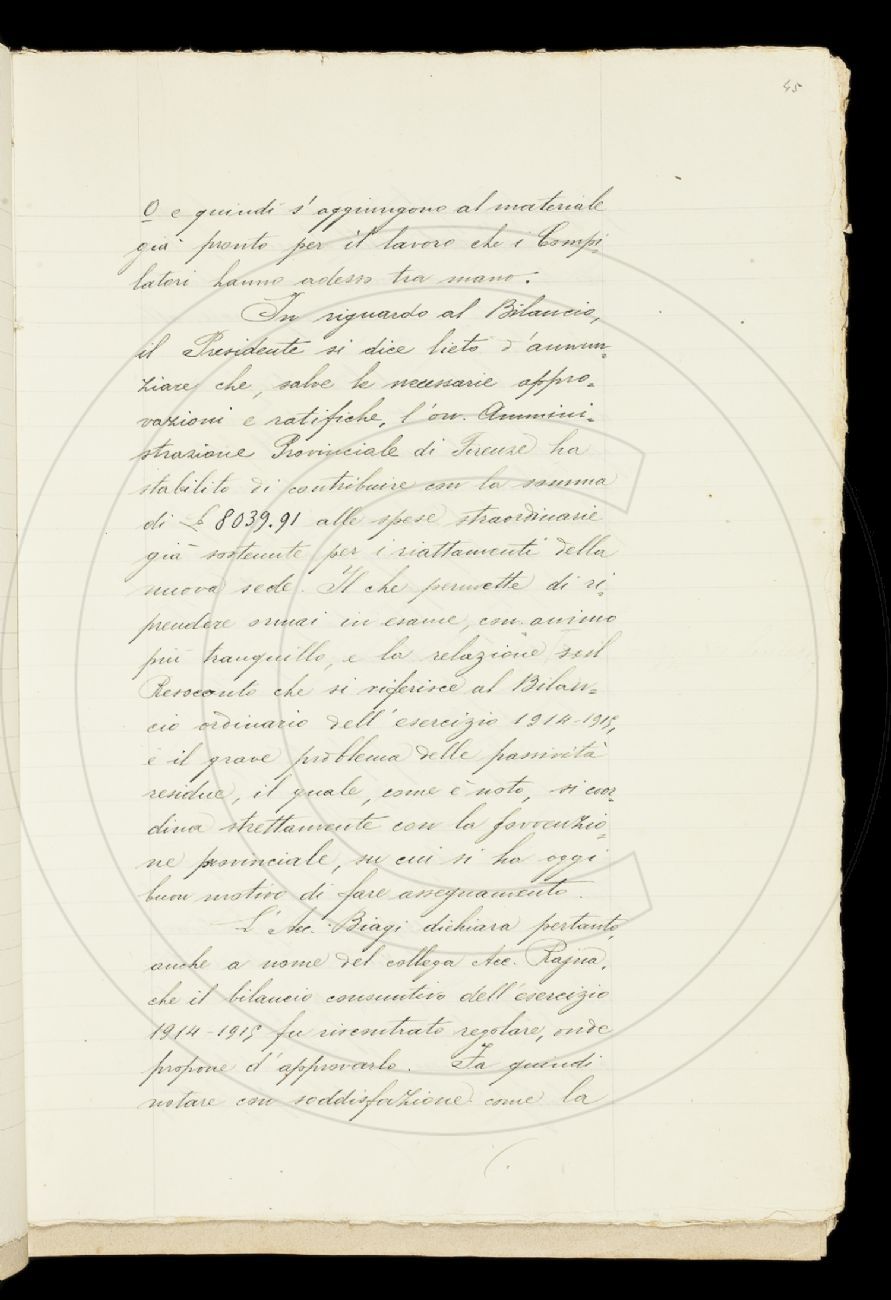 45
O e quindi s'aggiungono al materiale
già pronto per il lavoro che i Compi-
latori hanno adesso tra mano.
In riguardo al Bilancio,
il Presidente si dice lieto d'annun-
ziare che, salve le necessarie appro-
vazioni e ratifiche, l'on. Ammini-
strazione Provinciale di Firenze ha
stabilito di contribuire con la somma
di £ 8039.91 alle spese straordinarie
già sostenute per i riattamenti della
nuova sede. Il che permette di ri-
prendere ormai in esame, con animo
più tranquillo, e la relazione sul
Resoconto che si riferisce al Bilan-
cio ordinario dell'esercizio 1914-1915,
e il grave problema delle passività
residue, il quale, come è noto, si coor-
dina strettamente con la sovvenzio-
ne provinciale, su cui si ha oggi
buon motivo di fare assegnamento.
L'Acc. Biagi dichiara pertanto,
anche a nome del collega Acc. Rajna,
che il bilancio consuntivo dell'esercizio
1914-1915 fu riscontrato regolare, onde
propone d'approvarlo. Fa quindi
notare con soddisfazione come la